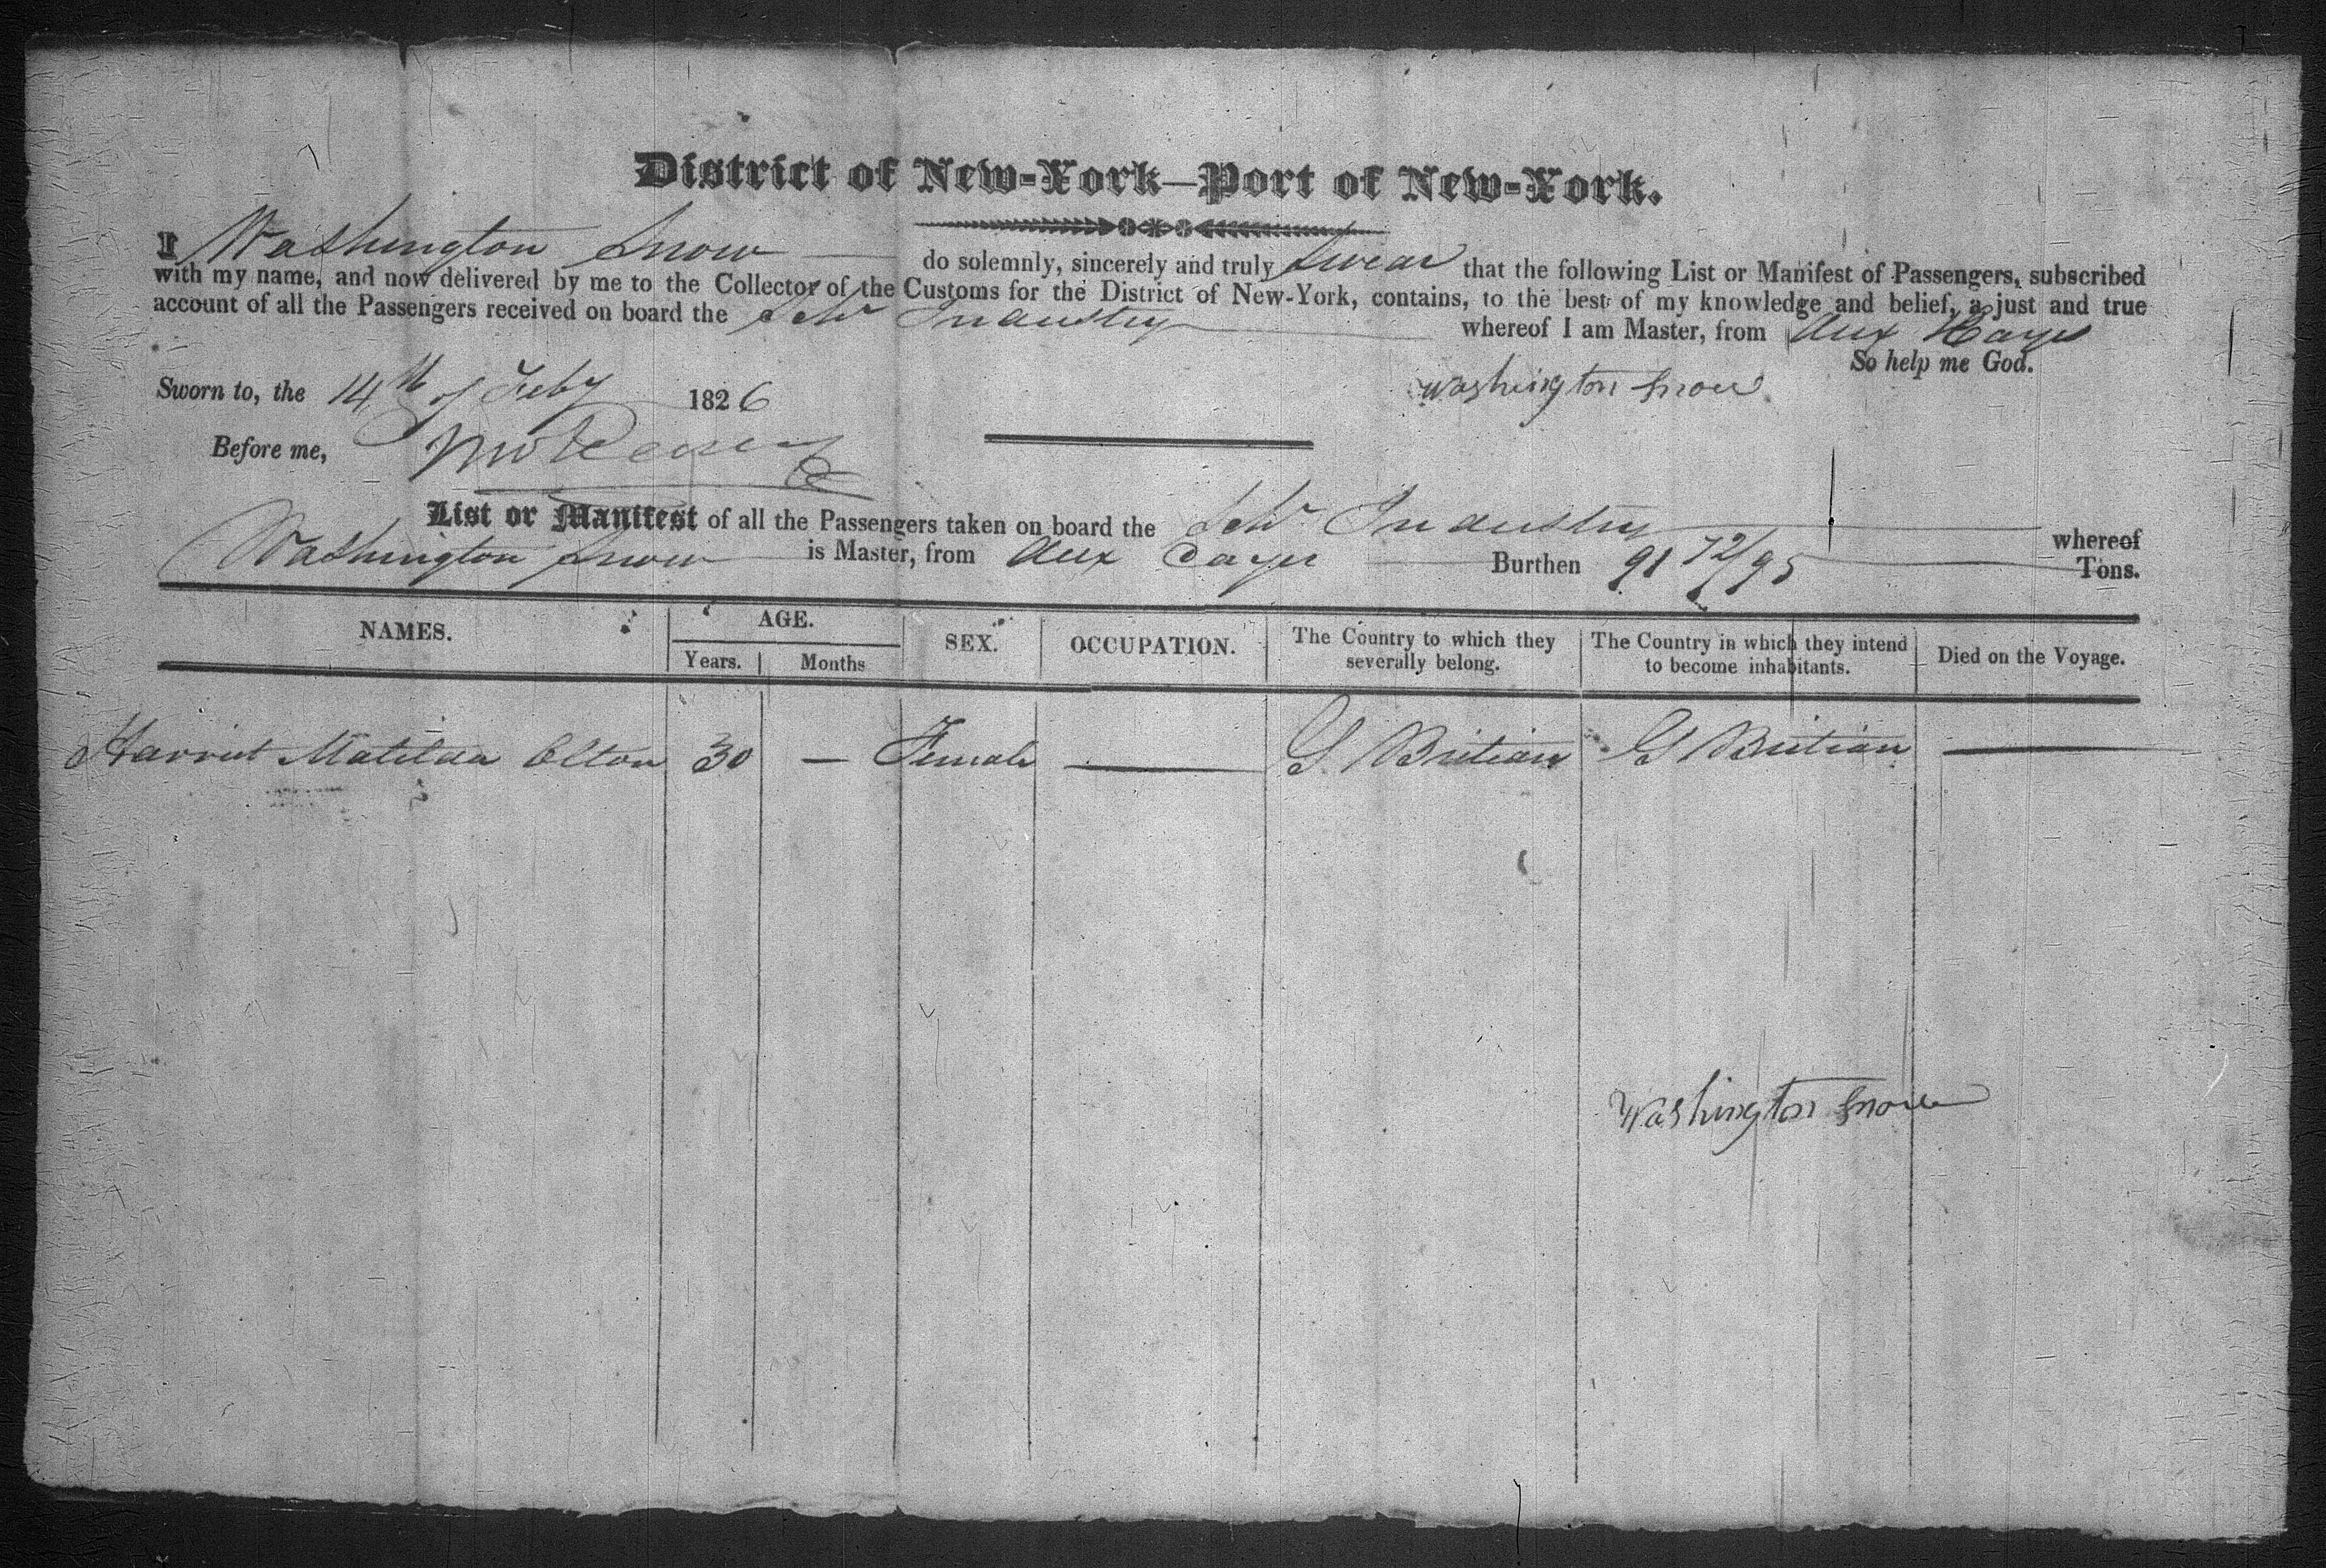 District of New-York—Port of New-York.
I Washington Snow do solemnly, sincerely and truly Swear that the following List or Manifest of Passengers, subscribed
with my name, and now delivered by me to the Collector of the Customs for the District of New-York, contains, to the best of my knowledge and belief, a just and true
account of all the Passengers received on board the Schr Industry whereof I am Master, from Aux Cayes
So help me God.
Sworn to, the 14th of Feby 1826
Washington Snow
Before me,
List or Manifest of all the Passengers taken on board the Schr Industry whereof
Washington Snow is Master, from Aux Cayes Burthen 91 72/95 Tons.
NAMES. AGE. SEX. OCCUPATION. The Country to which they severally belong. The Country in which they intend to become inhabitants. Died on the Voyage.
Years. Months
Harriet Matilda Elton 30 — Female — G. Britian G Britian —
Washington Snow